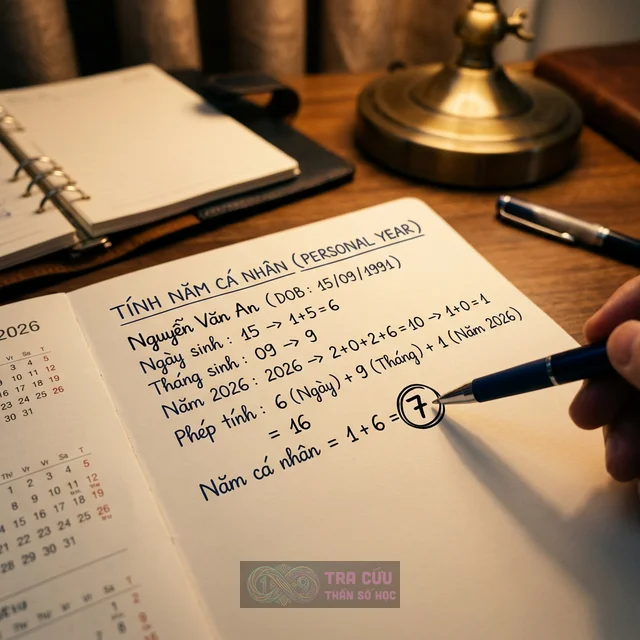 TÍNH NĂM CÁ NHÂN (PERSONAL YEAR)
Nguyễn Văn An (DOB: 15/09/1991)
Ngày sinh: 15 → 1+5=6
Tháng sinh: 09 → 9
Năm 2026: 2026 → 2+0+2+6=10 → 1+0=1
Phép tính: 6 (Ngày) + 9 (Tháng) + 1 (Năm 2026)
= 16
Năm cá nhân = 1+6 = 7
2026
Vr Sa T
3 4 5
9 10 11 12
16 17 18 19
23 24 25 26
30 31
Vr Sa T
1 2 3 4 5
8 9 10 11 12
14 15 16 17 18 19
21 22 23 24 25 26
28 29 30 31
1 2
8 9
TRA CỨU
THẦN SỐ HỌC